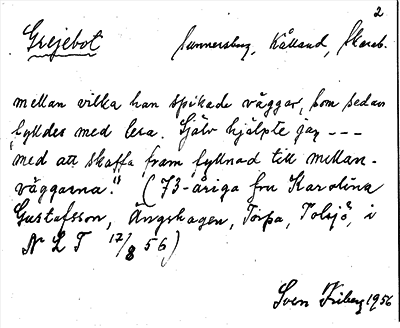 2
Grejebot Sunnersberg, Kålland, Skarab.
mellan vilka han spikade väggar, som sedan
fylldes med lera. Själv hjälpte jag ---
med att skaffa fram fyllnad till mellan-
väggarna." (73-åriga fru Karolina
Gustafsson, Ängshagen, Torpa, Tolsjö, i
N L T 17/8 56)
Sven Friberg 1956